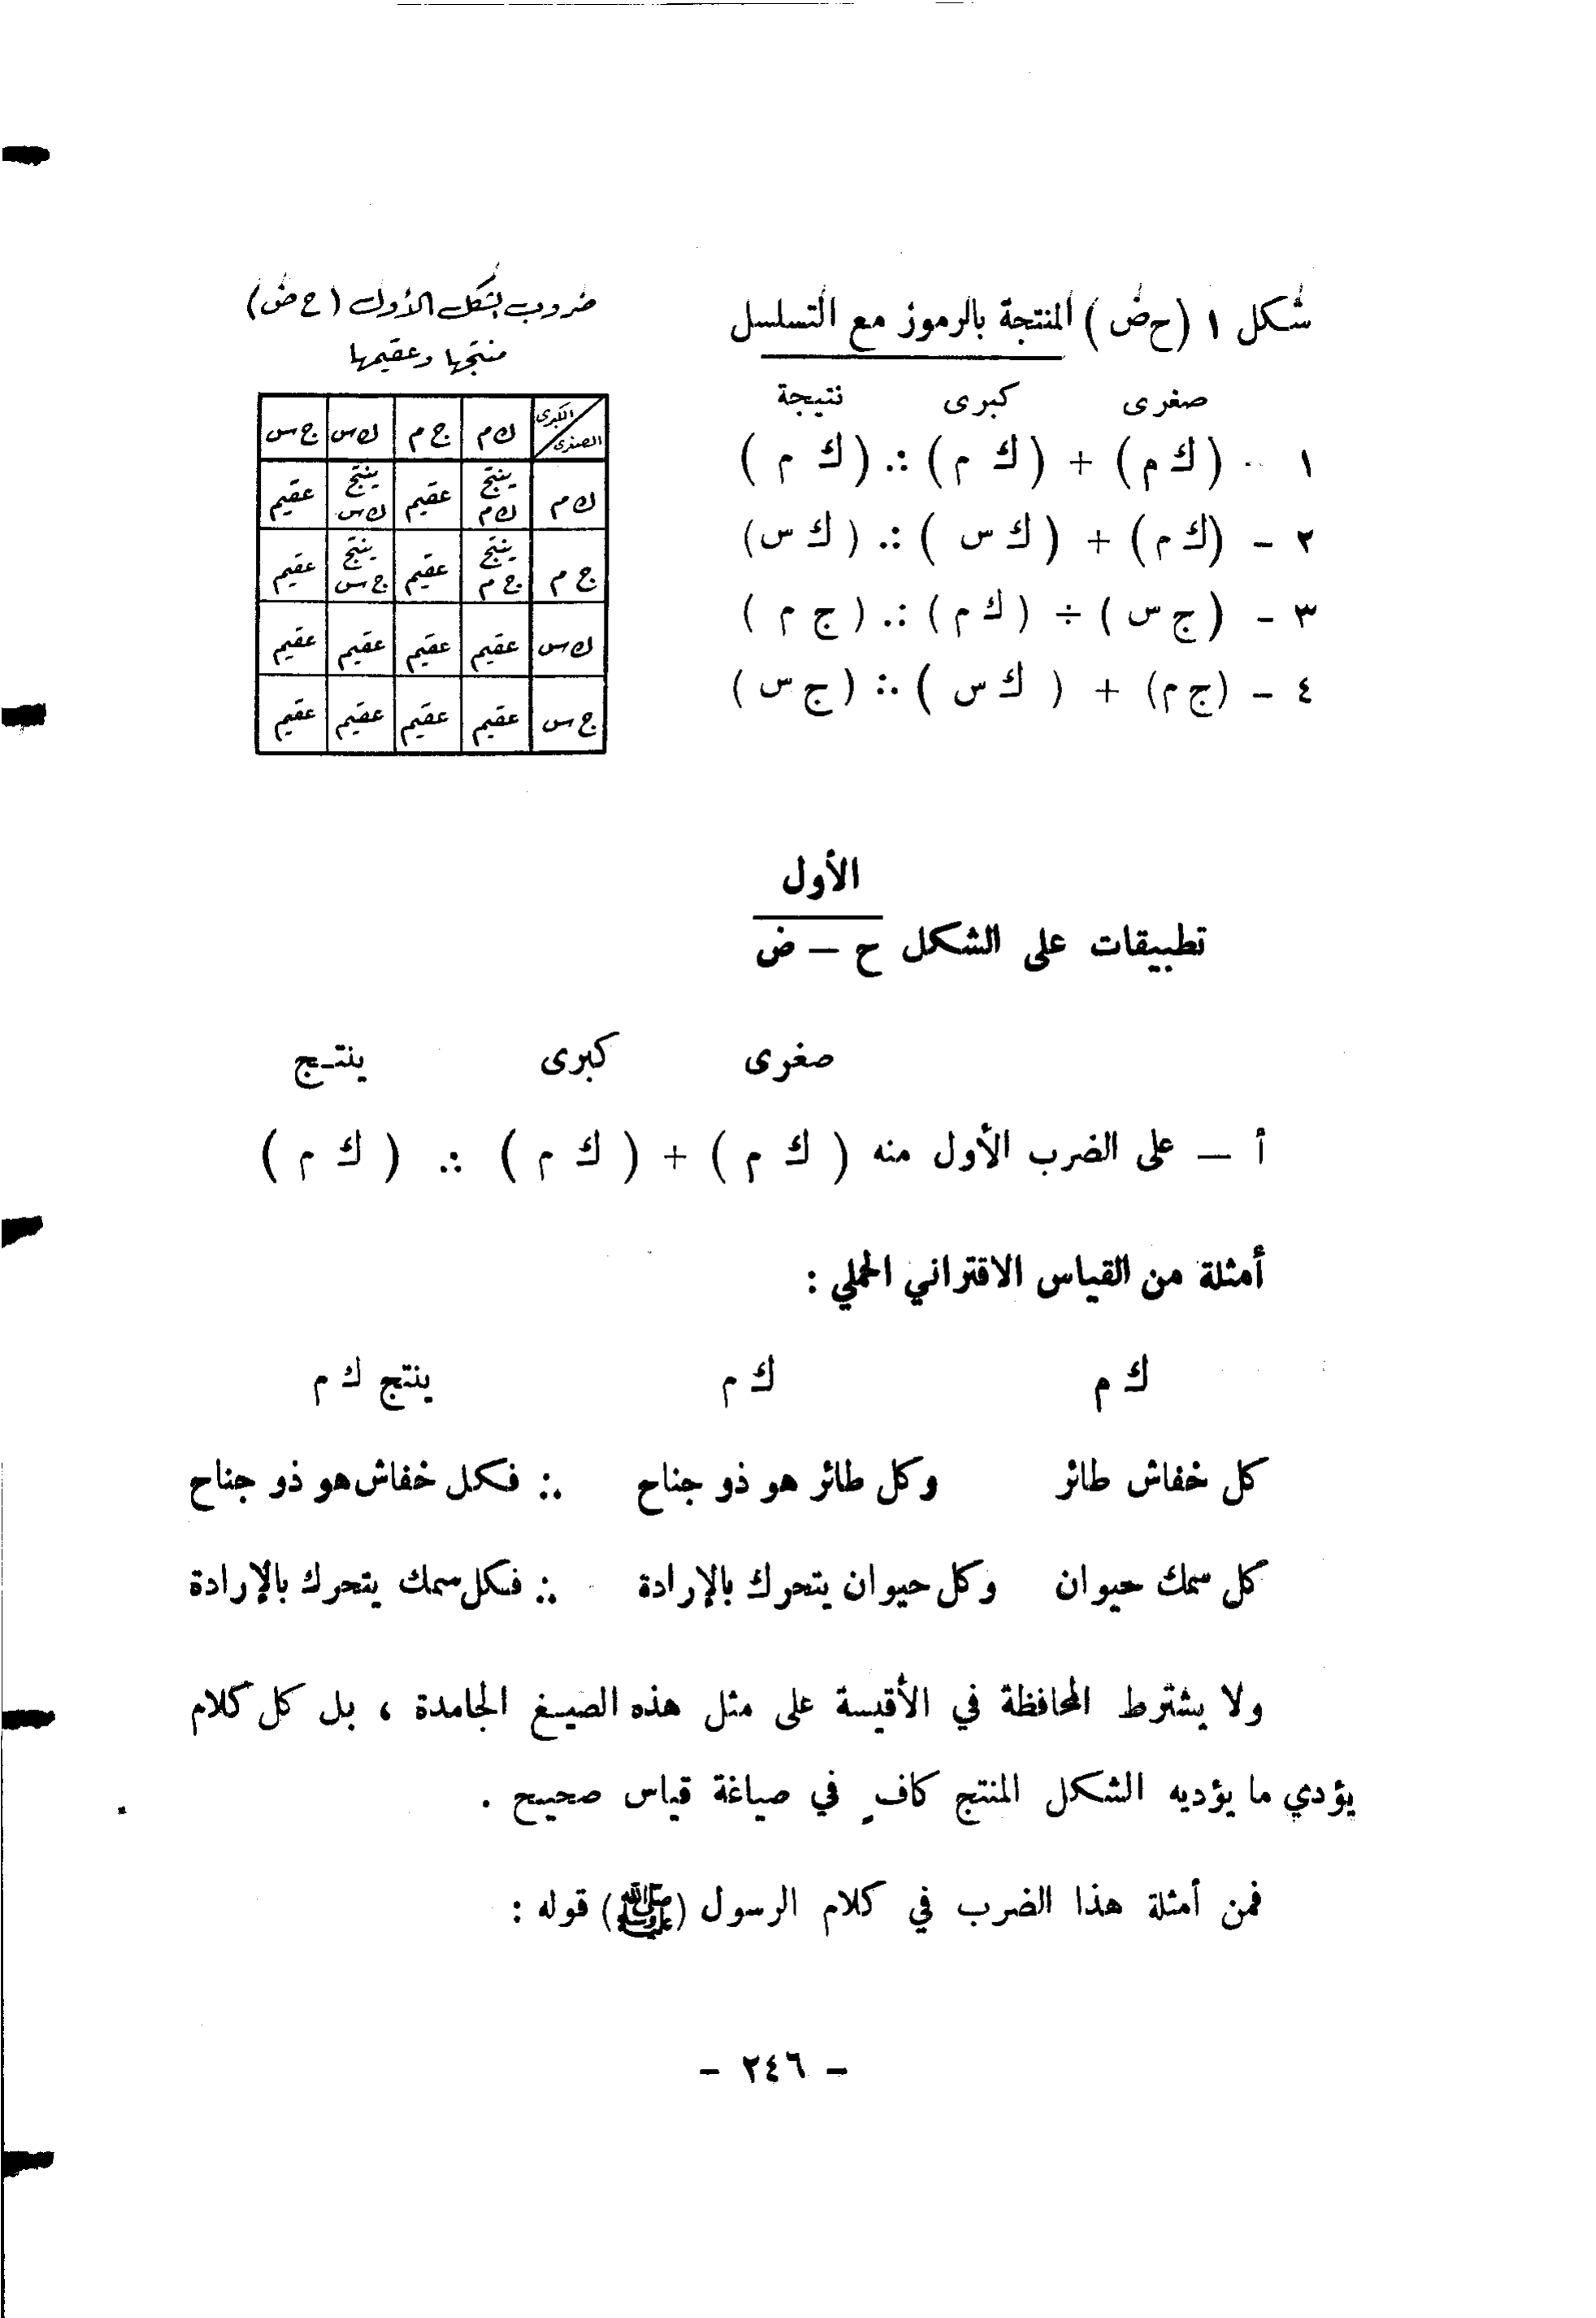 شكل ١ (ح ض) المنتجة بالرموز مع التسلسل
صغرى كبرى نتيجة
١ - (ك م) + (ك م) ∴ (ك م)
٢ - (ك م) + (ك س) ∴ (ك س)
٣ - (ج س) ÷ (ك م) ∴ (ج م)
٤ - (ج م) + (ك س) ∴ (ج س)
ضروب الشكل الأول (ح ض)
منتجها وعقيمها
الكبرى / الصغرى ك م ج م ك س ج س
ك م ينتج ك م عقيم ينتج ك س عقيم
ج م ينتج ج م عقيم ينتج ج س عقيم
ك س عقيم عقيم عقيم عقيم
ج س عقيم عقيم عقيم عقيم
الأول
تطبيقات على الشكل ح – ض
صغرى كبرى ينتـج
أ – على الضرب الأول منه (ك م) + (ك م) ∴ (ك م)
أمثلة من القياس الاقتراني الحملي :
ك م ك م ينتج ك م
كل خفاش طائر وكل طائر هو ذو جناح ∴ فكل خفاش هو ذو جناح
كل سمك حيوان وكل حيوان يتحرك بالإرادة ∴ فكل سمك يتحرك بالإرادة
ولا يشترط المحافظة في الأقيسة على مثل هذه الصيـغ الجامدة ، بل كل كلام
يؤدي ما يؤديه الشكل المنتج كافٍ في صياغة قياس صحيح .
فمن أمثلة هذا الضرب في كلام الرسول (ﷺ) قوله :
- ٢٤٦ -